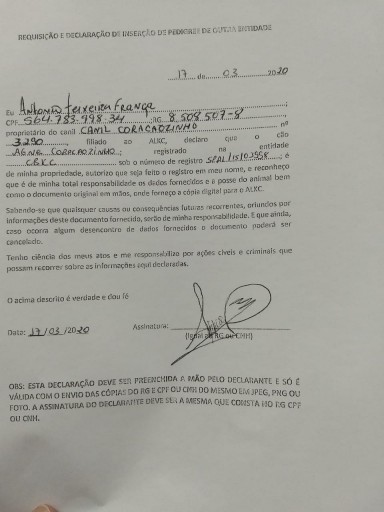 REQUISIÇÃO E DECLARAÇÃO DE INSERÇÃO DE PEDIGREE DE OUTRA ENTIDADE
17 de 03 2020
Eu Antonio Teixeira França;
CPF 564.783.998.34 ;RG 8.508.507-8;
proprietário do canil CANIL CORACAOZINHO nº
3.290, filiado ao ALKC, declaro que o cão
AGNE CORACAOZINHO; registrado na entidade
CBKC sob o número de registro ; é
de minha propriedade, autorizo que seja feito o registro em meu nome, e reconheço
que é de minha total responsabilidade os dados fornecidos e a posse do animal bem
como o documento original em mãos, onde forneço a cópia digital para o ALKC.
Sabendo-se que quaisquer causas ou consequências futuras recorrentes, oriundos por
informações deste documento fornecido, serão de minha responsabilidade. E que ainda,
caso ocorra algum desencontro de dados fornecidos o documento poderá ser
cancelado.
Tenho ciência dos meus atos e me responsabilizo por ações cíveis e criminais que
possam recorrer sobre as informações aqui declaradas.
O acima descrito é verdade e dou fé
Data: 17/03/2020 Assinatura:
(Igual ao RG ou CNH)
OBS: ESTA DECLARAÇÃO DEVE SER PREENCHIDA A MÃO PELO DECLARANTE E SÓ É
VÁLIDA COM O ENVIO DAS CÓPIAS DO RG E CPF OU CNH DO MESMO EM JPEG, PNG OU
FOTO. A ASSINATURA DO DECLARANTE DEVE SER A MESMA QUE CONSTA NO RG CPF
OU CNH.